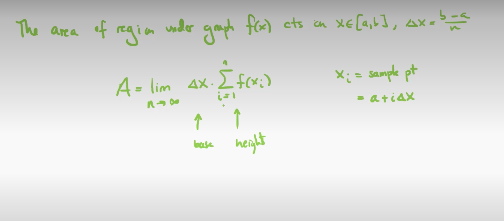 The area of region under graph f(x) cts on x∈[a,b], Δx = (b-a)/n
A = lim n→∞ Δx · Σ i=1 n f(xi)
xi = sample pt
= a + iΔx
↑ ↑
base height